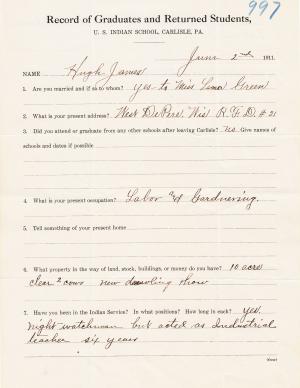 997
Record of Graduates and Returned Students,
U. S. INDIAN SCHOOL, CARLISLE, PA.
June 2nd 1911.
NAME Hugh James
1. Are you married and if so to whom? yes to Miss Lena Green
2. What is your present address? West De Pere Wis R.F.D. # 21
3. Did you attend or graduate from any other schools after leaving Carlisle? no Give names of
schools and dates if possible
4. What is your present occupation? Labor and Gardnering.
5. Tell something of your present home
6. What property in the way of land, stock, buildings, or money do you have? 10 acre
clear 2 cows new
7. Have you been in the Indian Service? In what positions? How long in each? yes.
night watchman but acted as Industrial
teacher six years
(over)